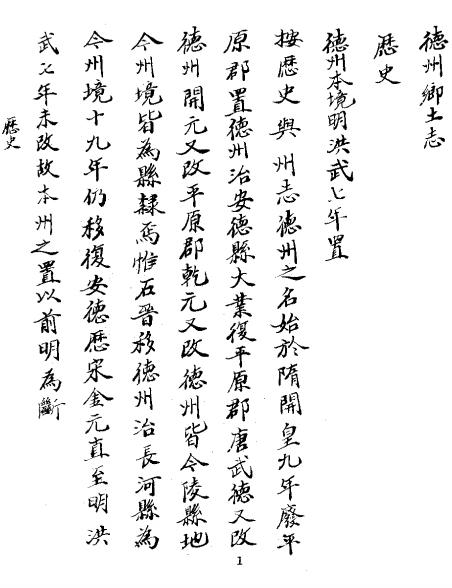 德州鄉土志
歷史
德州本境明洪武七年置
按歷史與州志德州之名始於隋開皇九年廢平
原郡置德州治安德縣大業復平原郡唐武德又改
德州開元又改平原郡乾元又改德州皆今陵縣地
今州境皆為縣隸焉惟石晉移德州治長河縣為
今州境十九年仍移復安德歷宋金元直至明洪
武七年未改故本州之置以前明為斷
歷史
1